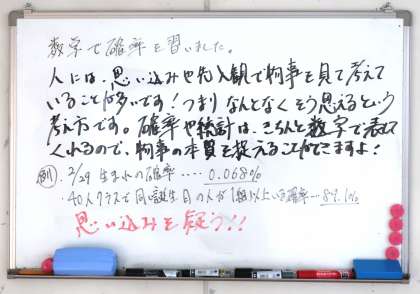 数学で確率を習いました。
人には、思い込みや先入観で物事を見て考えて
いることが多いです！つまりなんとなくそう思えるという
考え方です。確率や統計は、きちんと数字で表して
くれるので、物事の本質を捉えることができますよ！
例）・2/29 生まれの確率‥‥ 0.068%
・40人クラスで同じ誕生日の人が1組以上いる確率…89.1%
思い込みを疑う!!